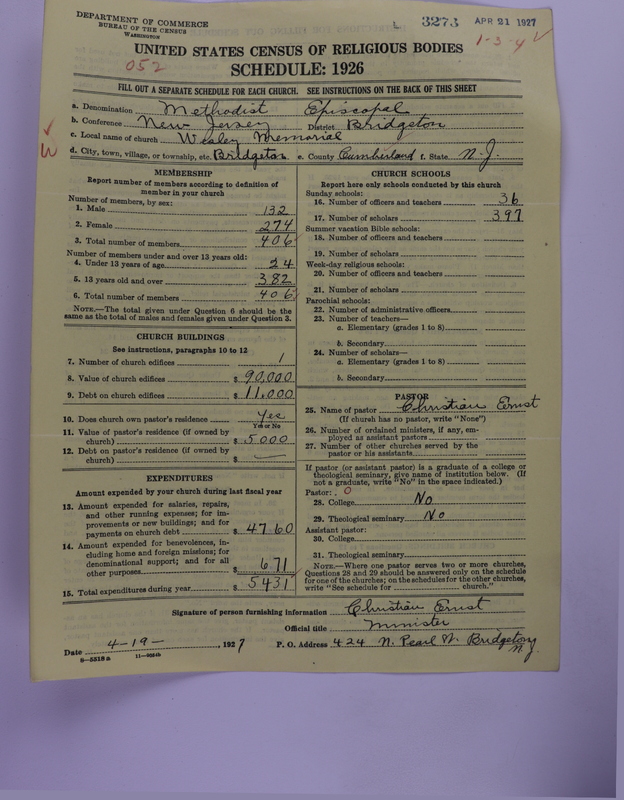 DEPARTMENT OF COMMERCE
BUREAU OF THE CENSUS
WASHINGTON
3273 APR 21 1927
1-3-4
052
UNITED STATES CENSUS OF RELIGIOUS BODIES
SCHEDULE: 1926
FILL OUT A SEPARATE SCHEDULE FOR EACH CHURCH. SEE INSTRUCTIONS ON THE BACK OF THIS SHEET
a. Denomination Methodist Episcopal
b. Conference New Jersey District Bridgeton
c. Local name of church Wesley Memorial
W
d. City, town, village, or township, etc. Bridgeton e. County Cumberland f. State N.J.
MEMBERSHIP
Report number of members according to definition of
member in your church
Number of members, by sex:
1. Male 132
2. Female 274
3. Total number of members 406
Number of members under and over 13 years old:
4. Under 13 years of age 24
5. 13 years old and over 382
6. Total number of members 406
NOTE.—The total given under Question 6 should be the
same as the total of males and females given under Question 3.
CHURCH BUILDINGS
See instructions, paragraphs 10 to 12
7. Number of church edifices 1
8. Value of church edifices $ 90,000
9. Debt on church edifices $ 11,000
10. Does church own pastor's residence Yes
Yes or No
11. Value of pastor's residence (if owned by
church) $ 5000
12. Debt on pastor's residence (if owned by
church) $ —
EXPENDITURES
Amount expended by your church during last fiscal year
13. Amount expended for salaries, repairs,
and other running expenses; for im-
provements or new buildings; and for
payments on church debt $ 4760
14. Amount expended for benevolences, in-
cluding home and foreign missions; for
denominational support; and for all
other purposes $ 671
15. Total expenditures during year $ 5431
CHURCH SCHOOLS
Report here only schools conducted by this church
Sunday schools:
16. Number of officers and teachers 36
17. Number of scholars 397
Summer vacation Bible schools:
18. Number of officers and teachers
19. Number of scholars
Week-day religious schools:
20. Number of officers and teachers
21. Number of scholars
Parochial schools:
22. Number of administrative officers
23. Number of teachers—
a. Elementary (grades 1 to 8)
b. Secondary
24. Number of scholars—
a. Elementary (grades 1 to 8)
b. Secondary
PASTOR
25. Name of pastor Christian Ernst
(If church has no pastor, write "None")
26. Number of ordained ministers, if any, em-
ployed as assistant pastors
27. Number of other churches served by the
pastor or his assistants
If pastor (or assistant pastor) is a graduate of a college or
theological seminary, give name of institution below. (If
not a graduate, write "No" in the space indicated.)
Pastor: O
28. College No
29. Theological seminary No
Assistant pastor:
30. College
31. Theological seminary
NOTE.—Where one pastor serves two or more churches,
Questions 28 and 29 should be answered only on the schedule
for one of the churches; on the schedules for the other churches,
write "See schedule for church."
Signature of person furnishing information Christian Ernst
Official title Minister
Date 4-19-, 1927 P. O. Address 424 N. Pearl St. Bridgeton
N.J.
8—5518 a